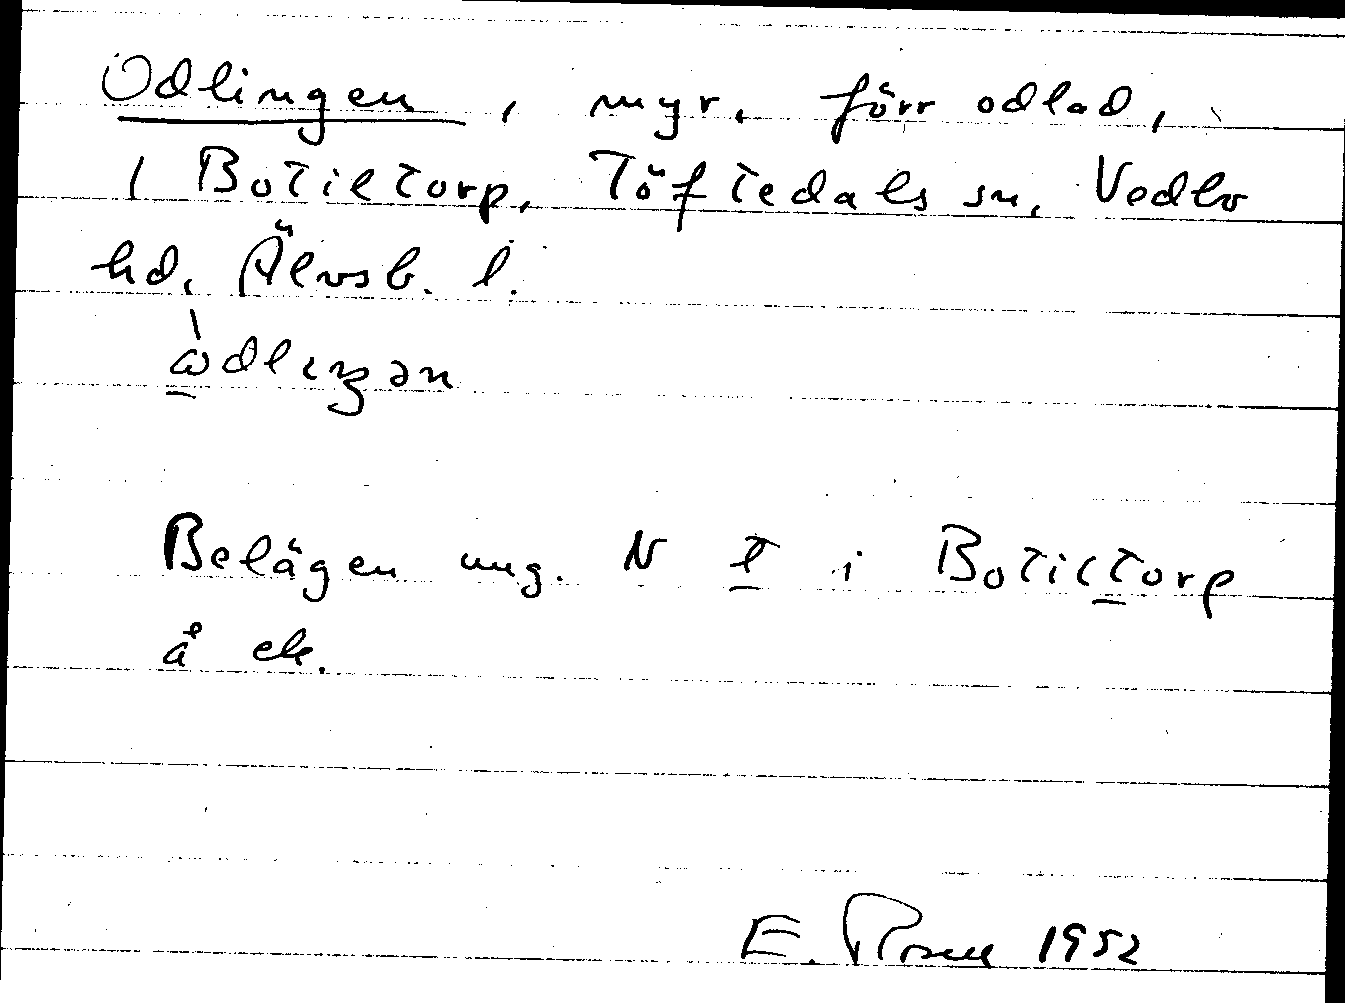 Odlingen, myr, förr odlad,
i Botiltorp, Töftedals sn, Vedbo
hd, Älvsb. l.
ὼdlıŋən
Belägen ung. N t i Botiltorp
å ek.
E. Rosell 1952